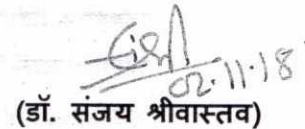 02.11.18
(डॉ. संजय श्रीवास्तव)